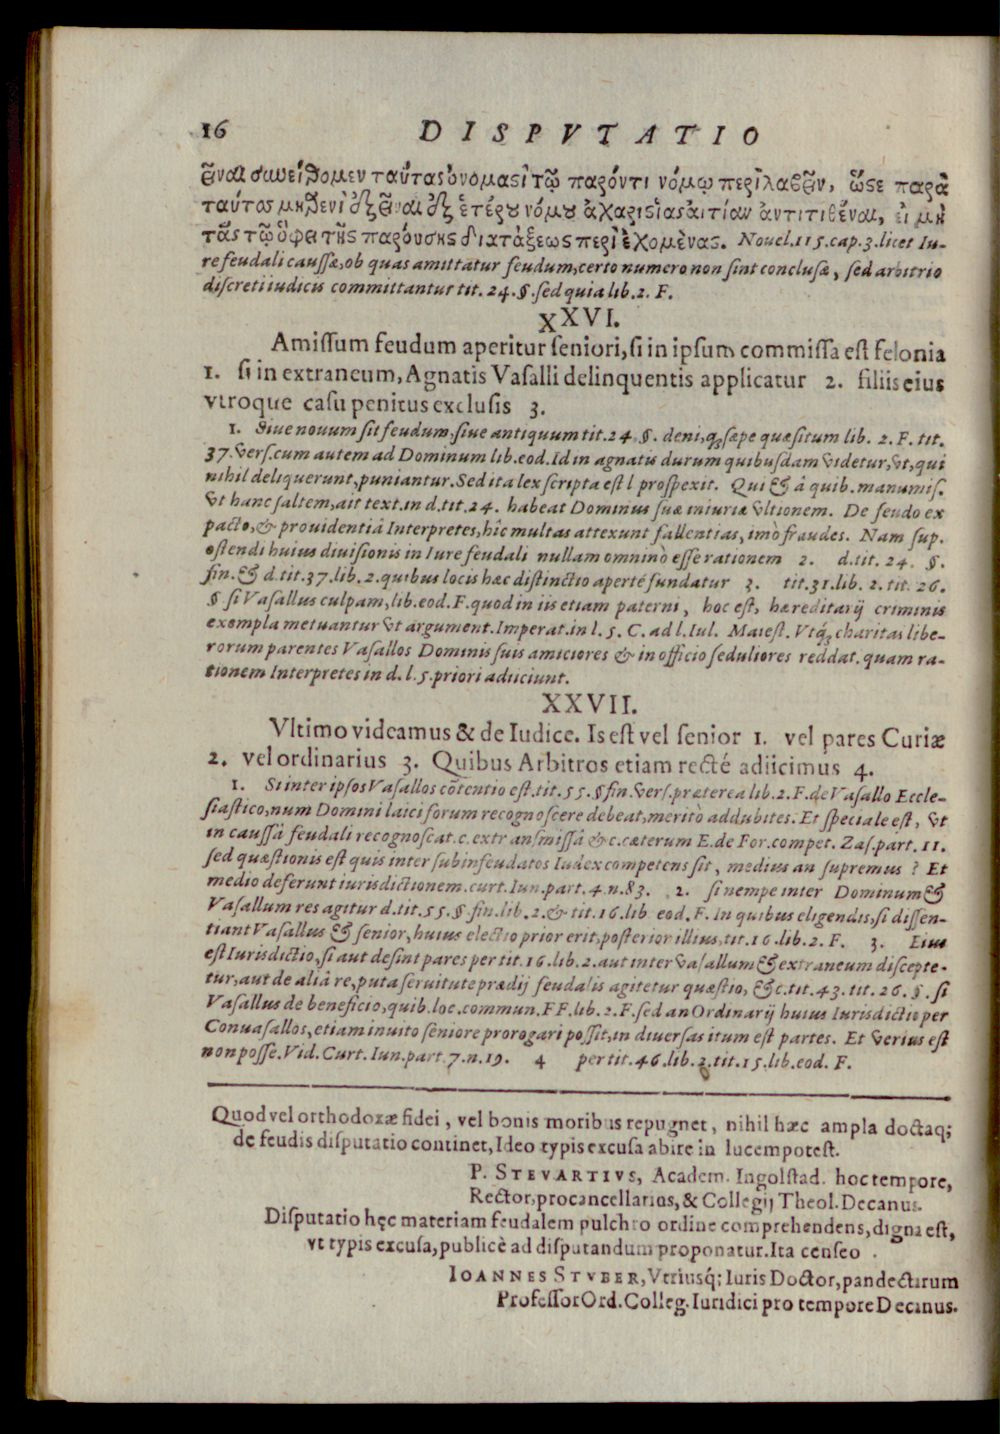 16 DISPVTATIO
εἶναι συνείδομεν ταύτας ὀνομαστὶ τῷ παρόντι νόμῳ περιλαβεῖν, ὥστε παρὰ
ταύτας μηδενὶ ἐξεῖναι ἐξ ἑτέρου νόμου ἀχαριστίας αἰτίαν ἀντιτιθέναι, εἰ μὴ
τὰς τῷ ὕφει τῆς παρούσης διατάξεως περιεχομένας. Nouel.115.cap.3.licet Iu-
re feudali caussæ, ob quas amittatur feudum, certo numero non sint conclusæ, sed arbitrio
discreti iudicis committantur tit. 24. §. sed quia lib. 2. F.
XXVI.
Amissum feudum aperitur seniori, si in ipsum commissa est felonia
1. si in extraneum, Agnatis Vasalli delinquentis applicatur 2. filiis eius
vtroque casu penitus exclusis 3.
1. Siue nouum sit feudum, siue antiquum tit.24. §. deniq; sæpe quæsitum lib. 2. F. tit.
37. vers. cum autem ad Dominum lib. eod. Id in agnatis durum quibusdam videtur, vt, qui
nihil deliquerunt, puniantur. Sed ita lex scripta est l prospexit. Qui & à quib. manumis.
vt hanc saltem, ait text. in d. tit. 24. habeat Dominus suæ iniuriæ vltionem. De feudo ex
pacto, & prouidentiâ Interpretes, hîc multas attexunt fallentias, imò fraudes. Nam sup.
ostendi huius diuisionis in Iure feudali nullam omninò esse rationem 2. d. tit. 24. §.
fin. & d. tit. 37. lib. 2. quibus locis hæc distinctio aperté fundatur 3. tit. 31. lib. 2. tit. 26.
§ si Vasallus culpam, lib. eod. F. quod in iis etiam paterni, hoc est, hæreditarij criminis
exempla metuantur vt argument. Imperat. in l. 5. C. ad l. Iul. Maiest. Vtq; charitas libe-
rorum parentes Vasallos Dominis suis amiciores & in officio seduliores reddat. quam ra-
tionem Interpretes in d. l. 5. priori adiiciunt.
XXVII.
Vltimo videamus & de Iudice. Is est vel senior 1. vel pares Curiæ
2. vel ordinarius 3. Quibus Arbitros etiam recté adiicimus 4.
1. Si inter ipsos Vasallos cõtentio est. tit. 55. § fin. vers. præterea lib. 2. F. de Vasallo Eccle-
siastico, num Domini laici forum recognoscere debeat, meritò addubites. Et speciale est, vt
in caussâ feudali recognoscat. c. ex transmissâ & c. cæterum E. de For. compet. Zas. part. 11.
sed quæstionis est quis inter subinfeudatos Iudex competens sit, medius an supremus ? Et
medio deferunt iurisdictionem. curt. Iun. part. 4. n. 83. 2. si nempe inter Dominum &
Vasallum res agitur d. tit. 55. §. fin. lib. 2. & tit. 16. lib eod. F. In quibus eligendis, si dissen-
tiant Vasallus & senior, huius electio prior erit, posterior illius, tit. 16. lib. 2. F. 3. Eius
est Iurisdictio, si aut desint pares per tit. 16. lib. 2. aut inter vasallum & extraneum discepte-
tur, aut de aliâ re, puta seruitute prædij feudalis agitetur quæstio, &c. tit. 43. tit. 26. §. si
Vasallus de beneficio, quib. loc. commun. FF. lib. 2. F. sed an Ordinarij huius Iurisdictio per
Conuasallos, etiam inuito seniore prorogari possit, in diuersas itum est partes. Et verius est
non posse. Vid. Curt. Iun. part. 7. n. 19. 4 per tit. 46. lib. 2. tit. 15. lib. eod. F.
Quod vel orthodoxæ fidei, vel bonis moribus repugnet, nihil hæc ampla doctaq;
de feudis disputatio continet, Ideo typis excusa abire in lucem potest.
P. STEVARTIVS, Academ. Ingolstad. hoc tempore,
Rector, procancellarius, & Collegij Theol. Decanus.
Disputatio hęc materiam feudalem pulchro ordine comprehendens, digna est,
vt typis excusa, publicè ad disputandum proponatur. Ita censeo .
IOANNES STVBER, Vtriusq́; Iuris Doctor, pandectarum
Professor Ord. Colleg. Iuridici pro tempore Decanus.